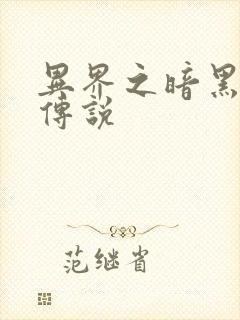 異界之暗黑
傳說
范继省